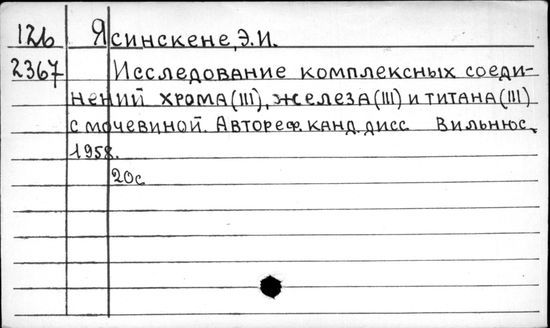 126 Ясинскене, Э.И.
2367 Исследование комплексных соеди-
нений хрома (III), железа (III) и титана (III)
с мочевиной. Автореф. канд. дисс. Вильнюс,
1958.
20с